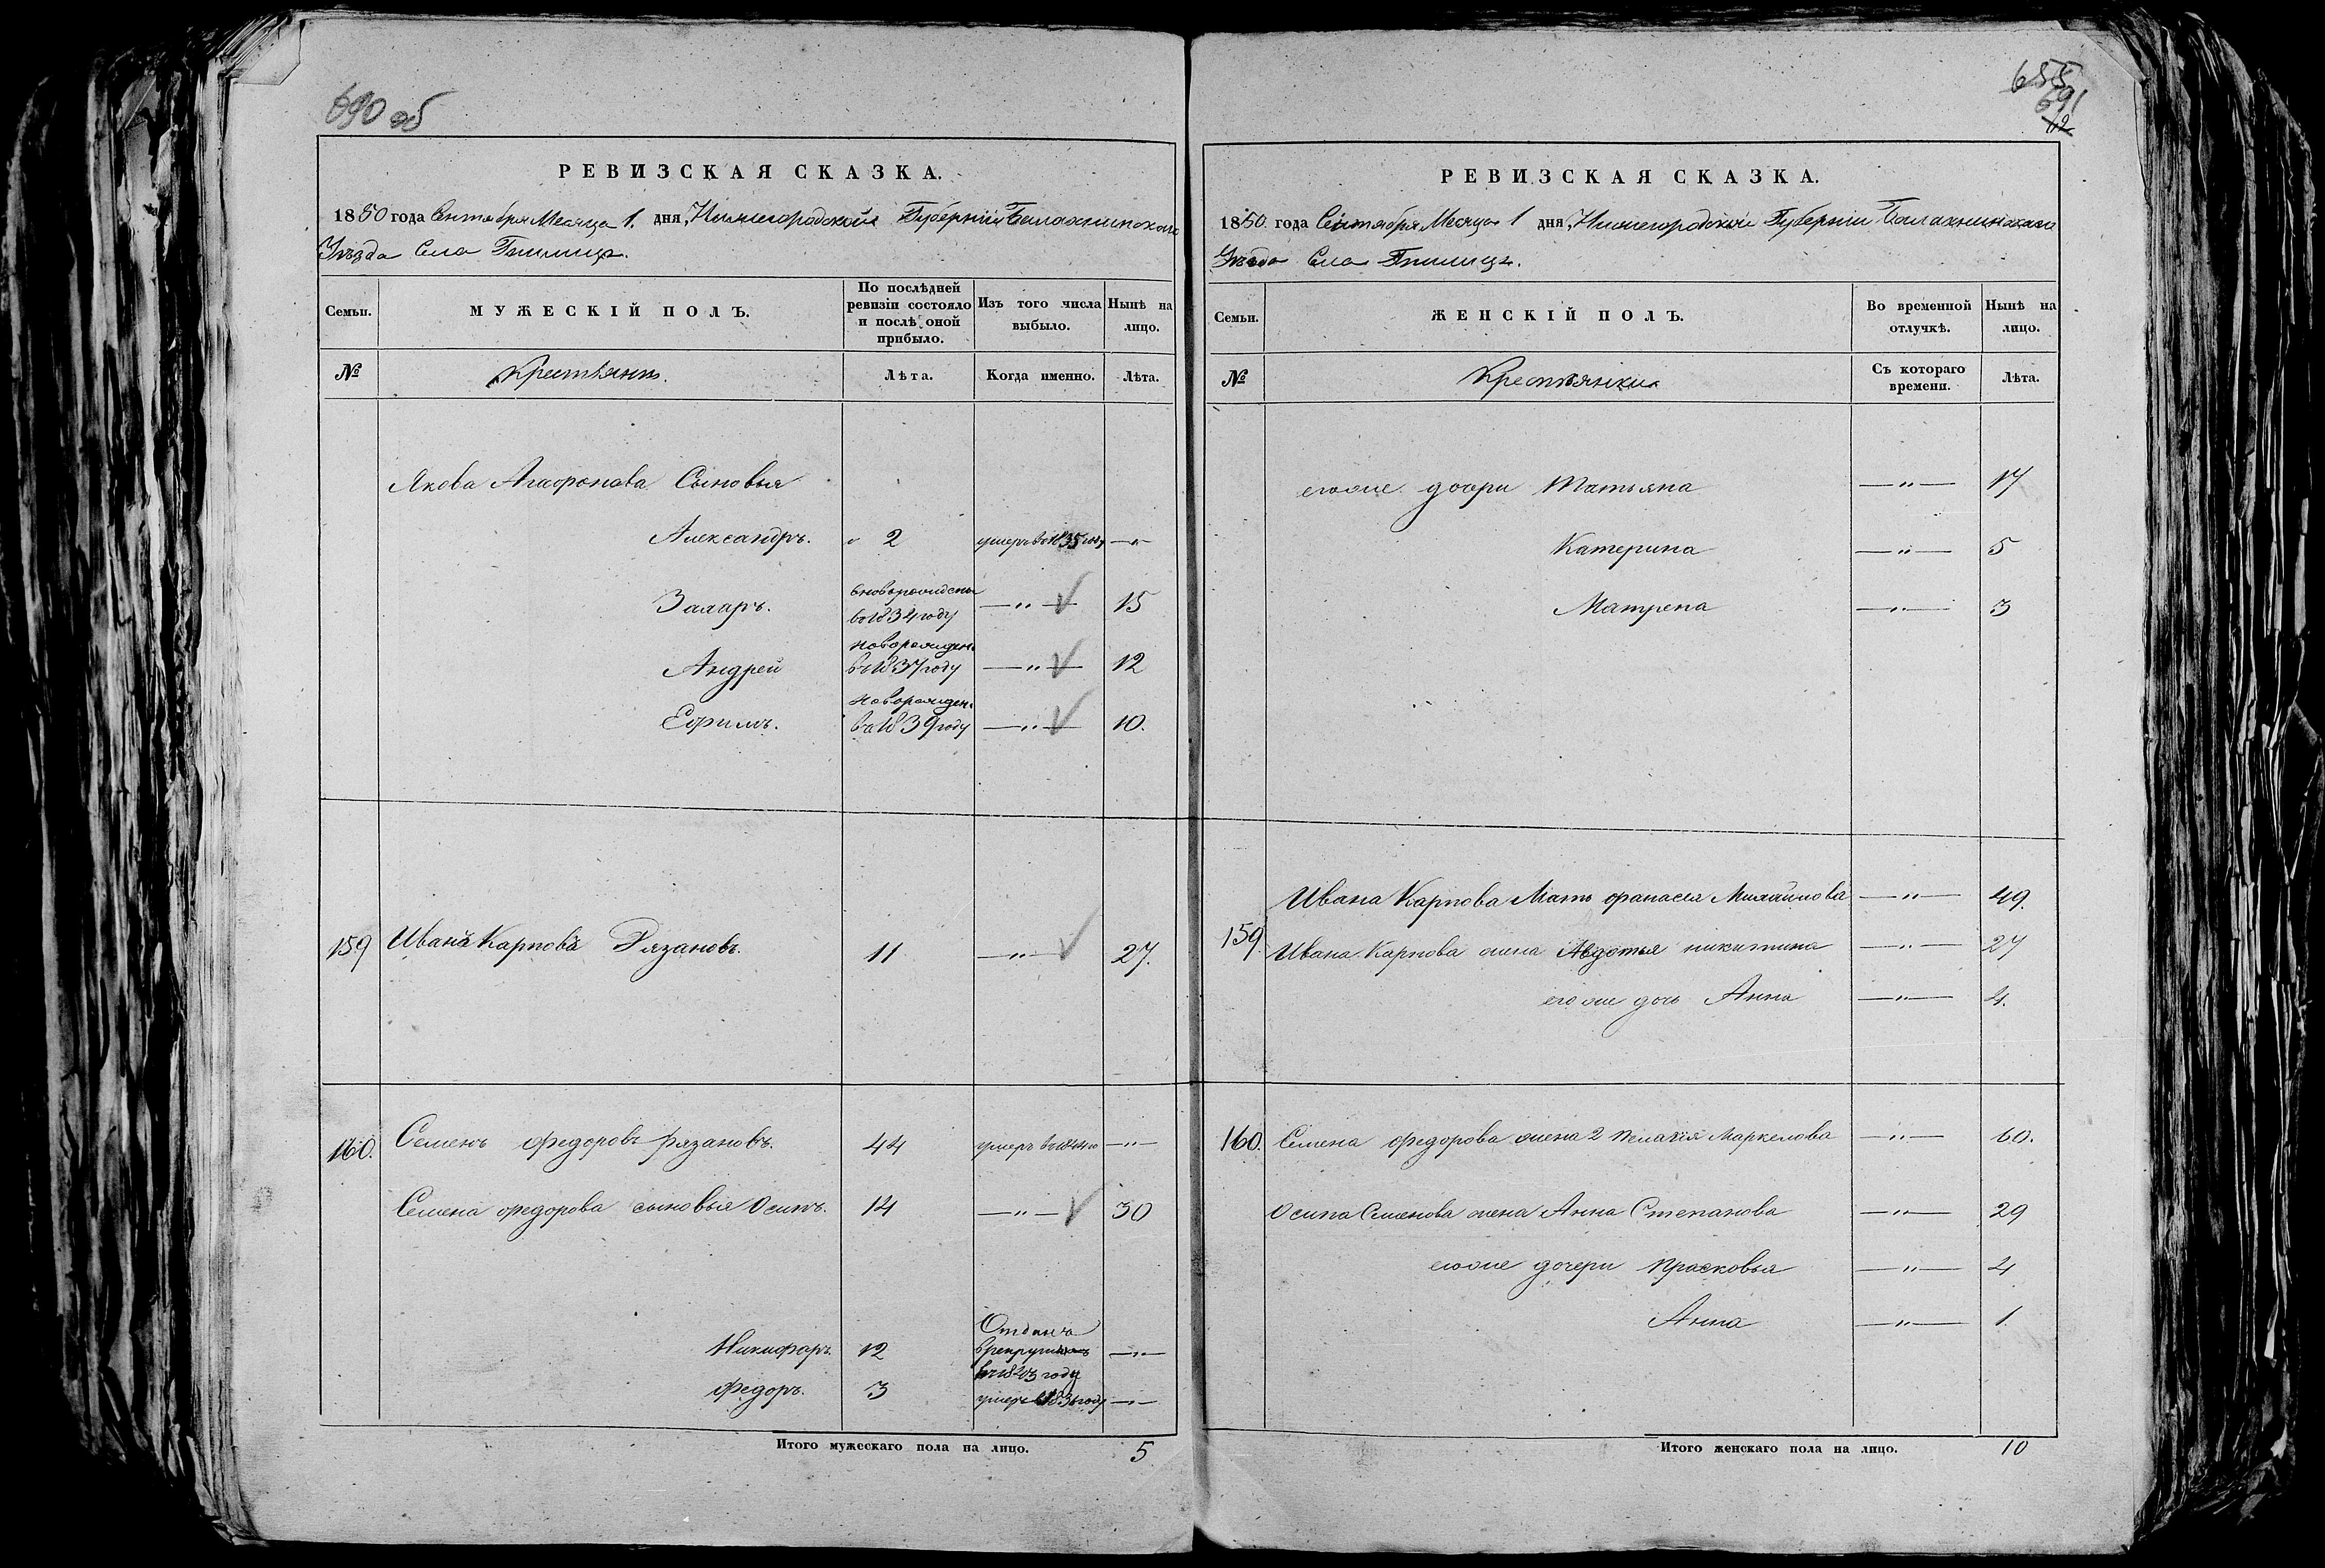 690 об
РЕВИЗСКАЯ СКАЗКА.
1850 года Сентября Месяца 1. дня, Нижегородской Губернiи Балахнинскаго
Уѣзда Села Гнилицъ.
Семьи. МУЖЕСКІЙ ПОЛЪ. По послѣдней ревизіи состояло и послѣ оной прибыло. Изъ того числа выбыло. Нынѣ на лицо.
№ Крестьянъ. Лѣта. Когда именно. Лѣта.
Якова Агафонова Сыновья
Александръ. 2 умеръ въ 1835 году —"—
Захаръ. вновьрожденъ —"— 15
въ 1834 году
Андрей новорожден. —"— 12
въ 1837 году
Ефимъ. новорожден. —"— 10.
въ 1839 году
159 Иванъ Карповъ Рязановъ. 11 —"— 27.
160. Семенъ федоровъ рязановъ. 44 умеръ —"—
Семена федорова сыновья Осипъ. 14 —"— 30
Отданъ
Никифаръ. 12 в рекруты —"—
году
федоръ. 3 умеръ в 1836 году —"—
Итого мужескаго пола на лицо. 5
655
691
12
РЕВИЗСКАЯ СКАЗКА.
1850. года Сентября Месяца 1 дня, Нижегородской Губернiи Балахнинскаго
Уѣзда Села Гнилицъ.
Семьи. ЖЕНСКІЙ ПОЛЪ. Во временной отлучкѣ. Нынѣ на лицо.
№ Крестьянки Съ котораго времени. Лѣта.
егоже дочри Татьяна —"— 17
Катерина —"— 5
Матрена —"— 3
Ивана Карпова Мать фанасья Михайлова —"— 49.
159. Ивана Карпова жена Авдотья никитина —"— 27
его же дочь Анна —"— 4.
160. Семена федорова жена 2 пелагiя Маркелова —"— 60.
Осипа Семенова жена Анна Степанова —"— 29
егоже дочери прасковья —"— 4
Анна —"— 1.
Итого женскаго пола на лицо. 10